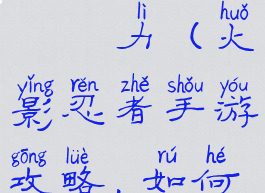 lì huǒ
力（火
yǐng rěn zhě shǒu yóu
影忍者手游
gōng lüè rú hé
攻略，如何